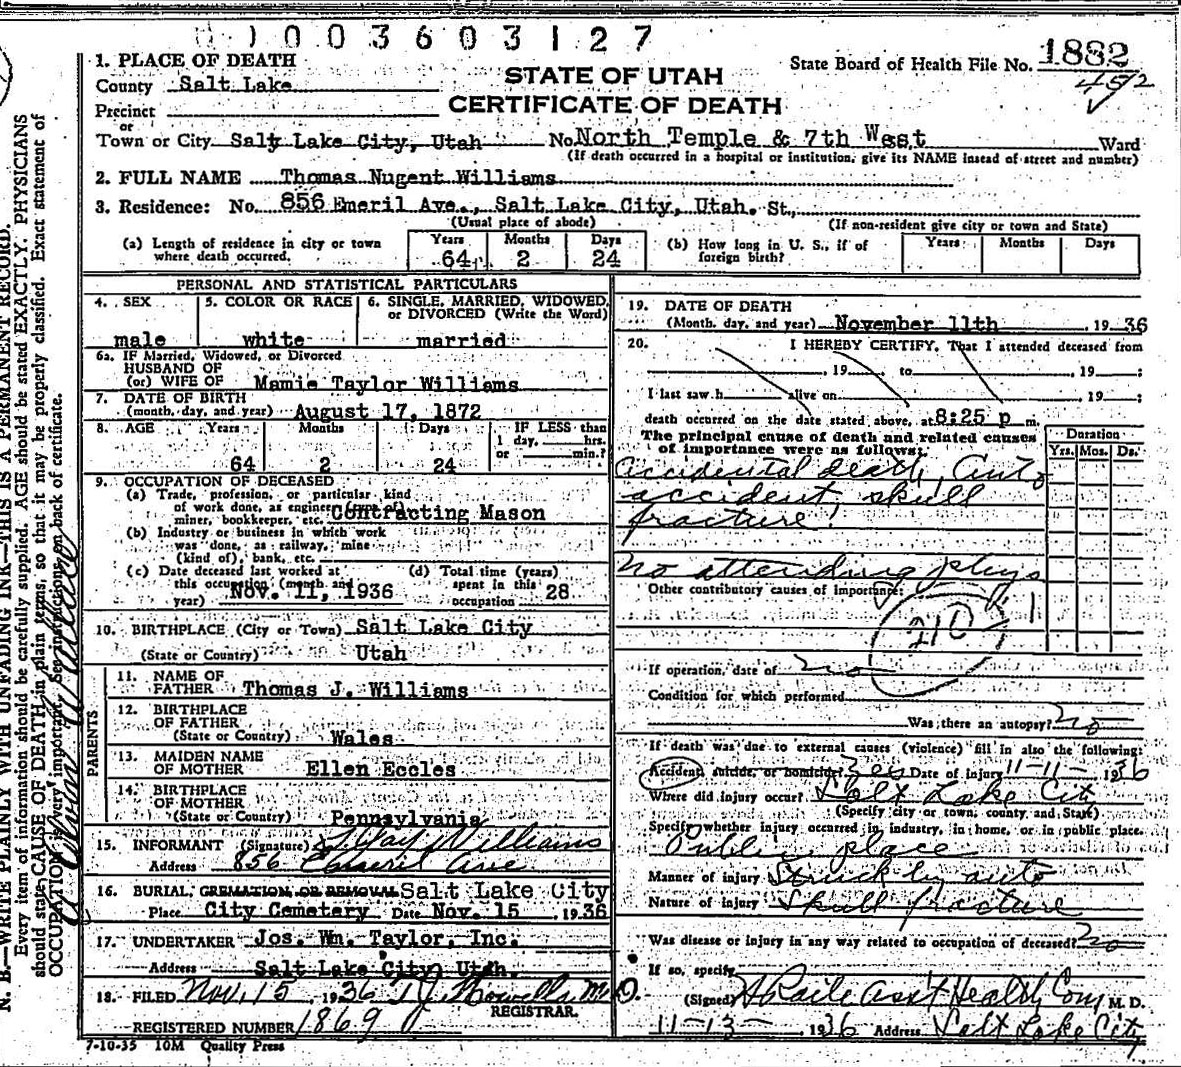 003603127
1. PLACE OF DEATH
County Salt Lake
STATE OF UTAH
CERTIFICATE OF DEATH
State Board of Health File No. 1882
452
Precinct
or
Town or City Salt Lake City, Utah No. North Temple & 7th West Ward
(If death occurred in a hospital or institution, give its NAME instead of street and number)
2. FULL NAME Thomas Nugent Williams
3. Residence: No. 856 Emeril Ave., Salt Lake City, Utah. St.,
(Usual place of abode) (If non-resident give city or town and State)
(a) Length of residence in city or town where death occurred. Years 64 Months 2 Days 24
(b) How long in U. S., if of foreign birth? Years Months Days
PERSONAL AND STATISTICAL PARTICULARS
4. SEX 5. COLOR OR RACE 6. SINGLE, MARRIED, WIDOWED, or DIVORCED (Write the Word)
male white married
6a. IF Married, Widowed, or Divorced
HUSBAND OF
(or) WIFE OF Mamie Taylor Williams
7. DATE OF BIRTH
(month, day, and year) August 17, 1872
8. AGE Years Months Days IF LESS than
1 day, hrs.
or min.?
64 2 24
9. OCCUPATION OF DECEASED
(a) Trade, profession, or particular kind
of work done, as engineer,
miner, bookkeeper, etc. Contracting Mason
(b) Industry or business in which work
was done, as railway, mine
(kind of), bank, etc.
(c) Date deceased last worked at
this occupation (month and
year) Nov. 11, 1936
(d) Total time (years)
spent in this
occupation 28
10. BIRTHPLACE (City or Town) Salt Lake City
(State or Country) Utah
PARENTS
11. NAME OF
FATHER Thomas J. Williams
12. BIRTHPLACE
OF FATHER
(State or Country) Wales
13. MAIDEN NAME
OF MOTHER Ellen Eccles
14. BIRTHPLACE
OF MOTHER
(State or Country) Pennsylvania
15. INFORMANT (Signature) Williams
Address 856 Emeril Ave
16. BURIAL, CREMATION, OR REMOVAL Salt Lake City
Place City Cemetery Date Nov. 15, 1936
17. UNDERTAKER Jos. Wm. Taylor, Inc.
Address Salt Lake City, Utah.
18. FILED Nov. 15, 1936 T J Howells M.D.
REGISTRAR.
REGISTERED NUMBER 1869
7-10-35 10M Quality Press
19. DATE OF DEATH
(Month, day, and year) November 11th, 1936
20. I HEREBY CERTIFY, That I attended deceased from
, 19 to , 19 ;
I last saw h alive on , 19 ;
death occurred on the date stated above, at 8:25 p m.
The principal cause of death and related causes
of importance were as follows:
Duration
Yrs. Mos. Ds.
accidental death, Auto
accident, skull
fracture.
no attending phys
Other contributory causes of importance:
210
If operation, date of no
Condition for which performed
Was there an autopsy? no
If death was due to external causes (violence) fill in also the following:
Accident, suicide, or homicide? Yes Date of injury 11-11-1936
Where did injury occur? Salt Lake City
(Specify city or town, county and State)
Specify whether injury occurred in industry, in home, or in public place.
Public place
Manner of injury Struck by auto
Nature of injury Skull fracture
Was disease or injury in any way related to occupation of deceased? no
If so, specify
(Signed) Asst Health Com, M. D.
11-13-1936 Address Salt Lake City
N. B.—WRITE PLAINLY WITH UNFADING INK—THIS IS A PERMANENT RECORD.
Every item of information should be carefully supplied. AGE should be stated EXACTLY. PHYSICIANS
should state CAUSE OF DEATH in plain terms, so that it may be properly classified. Exact statement of
OCCUPATION is very important. See instructions on back of certificate.